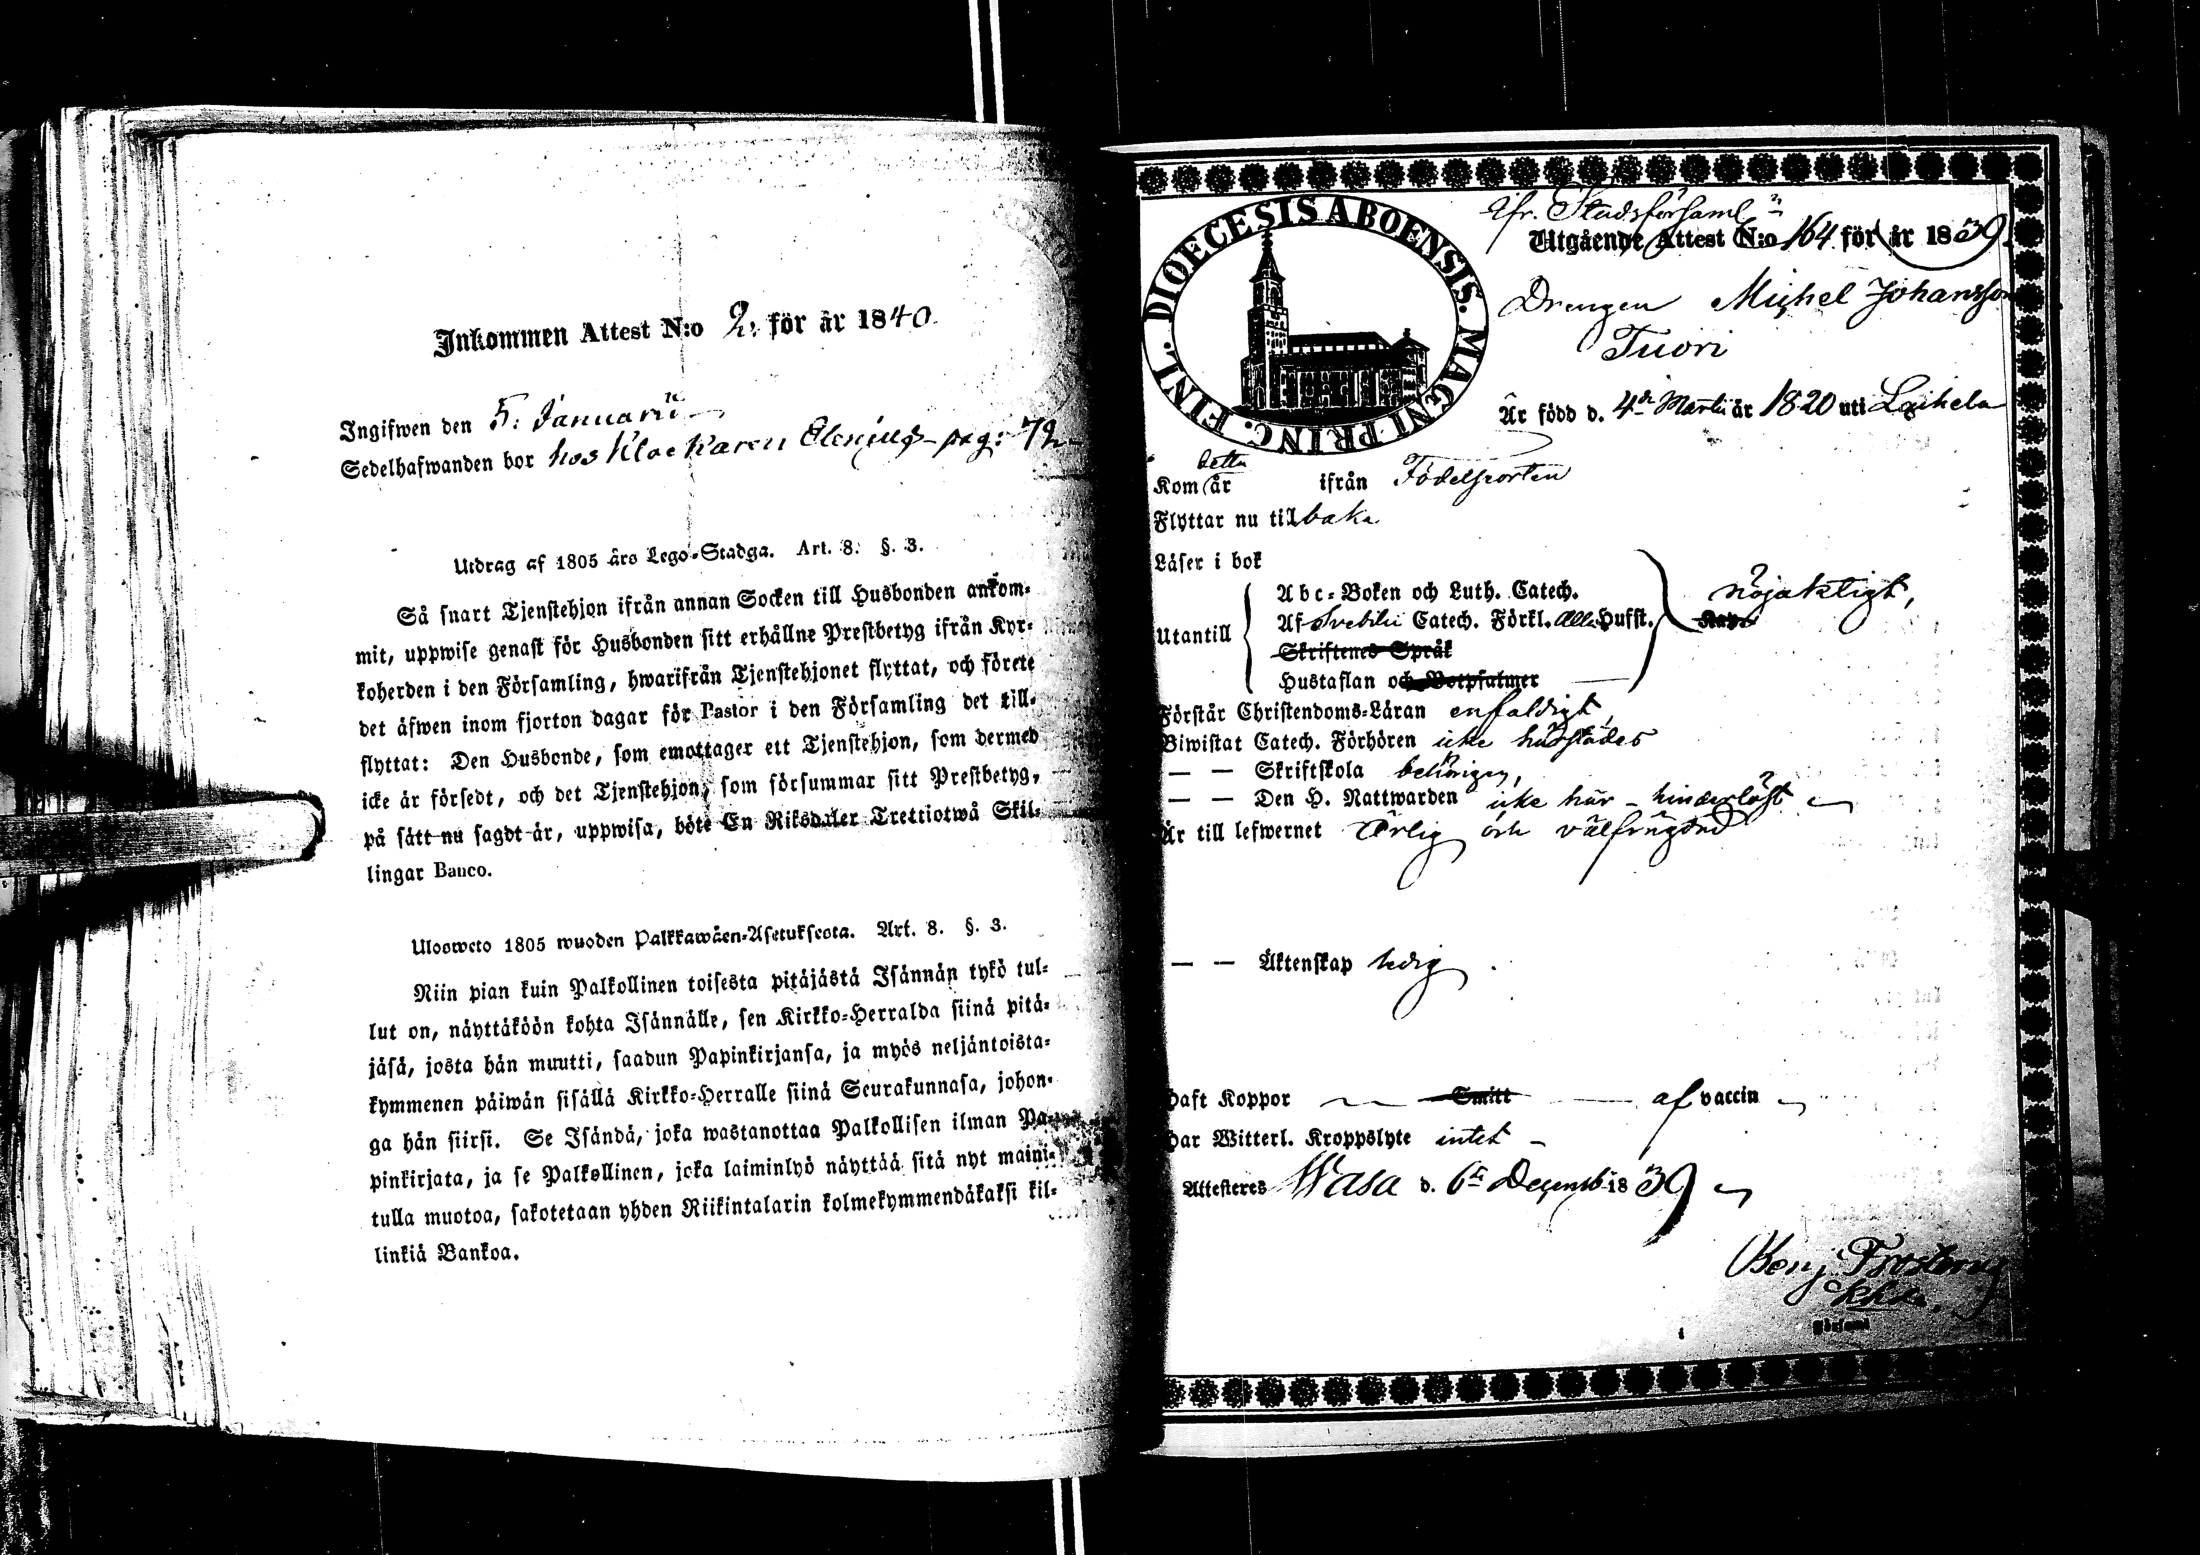 Inkommen Attest N:o 2. för år 1840.
Ingifwen den 5. Januarii
Sedelhafwanden bor hos Klockaren Elenius pag: 72
Utdrag af 1805 års Lego-Stadga. Art. 8. §. 3.
Så snart Tjenstehjon ifrån annan Socken till Husbonden ankom-
mit, uppwise genast för Husbonden sitt erhållne Prestbetyg ifrån Kyr-
koherden i den Församling, hwarifrån Tjenstehjonet flyttat, och förete
det äfwen inom fjorton dagar för Pastor i den Församling det till-
flyttat: Den Husbonde, som emottager ett Tjenstehjon, som dermed
icke är försedt, och det Tjenstehjon, som försummar sitt Prestbetyg,
på sätt nu sagdt är, uppwisa, böte En Riksdaler Trettiotwå Skil-
lingar Banco.
Ulosweto 1805 wuoden Palkkawäen-Asetuksesta. Art. 8. §. 3.
Niin pian kuin Palkollinen toisesta pitäjästä Isännän tykö tul-
lut on, näyttäköön kohta Isännälle, sen Kirkko-Herralda siinä pitä-
jäsä, josta hän muutti, saadun Papinkirjansa, ja myös neljäntoista-
kymmenen päiwän sisällä Kirkko-Herralle siinä Seurakunnasa, johon-
ga hän siirsi. Se Isändä, joka wastanottaa Palkollisen ilman Pa-
pinkirjata, ja se Palkollinen, joka laiminlyö näyttää sitä nyt maini-
tulla muotoa, sakotetaan yhden Riikintalarin kolmekymmendäkaksi kil-
linkiä Bankoa.
DIOECESIS ABOENSIS. MAGNI PRINC. FINL.
fr. Stadsförsaml
Utgående Attest N:o 164 för år 1839.
Drengen Michel Johansson
Tuori
Är född d. 4de Martii år 1820 uti Laihela
detta
Kom år ifrån Födelseorten
Flyttar nu tilbaka
Läser i bok
Abc-Boken och Luth. Catech.
nöjaktigt,
Utantill
Af Svebilii Catech. Förkl. Alla Hufst.
Skriftenes Språk
Hustaflan och Botpsalmer
Förstår Christendoms-Läran enfaldigt,
Biwistat Catech. Förhören icke härstädes
— — Skriftskola behörigen,
— — Den H. Nattwarden icke här - hinderlöst
Är till lefwernet Ärlig och välfrägdad
— — Äktenskap ledig.
Haft Koppor Smitt af vaccin
Har Witterl. Kroppslyte intet
Attesteres Wasa d. 6te Decemb. 1839
Benj. Frosterus
Khde.